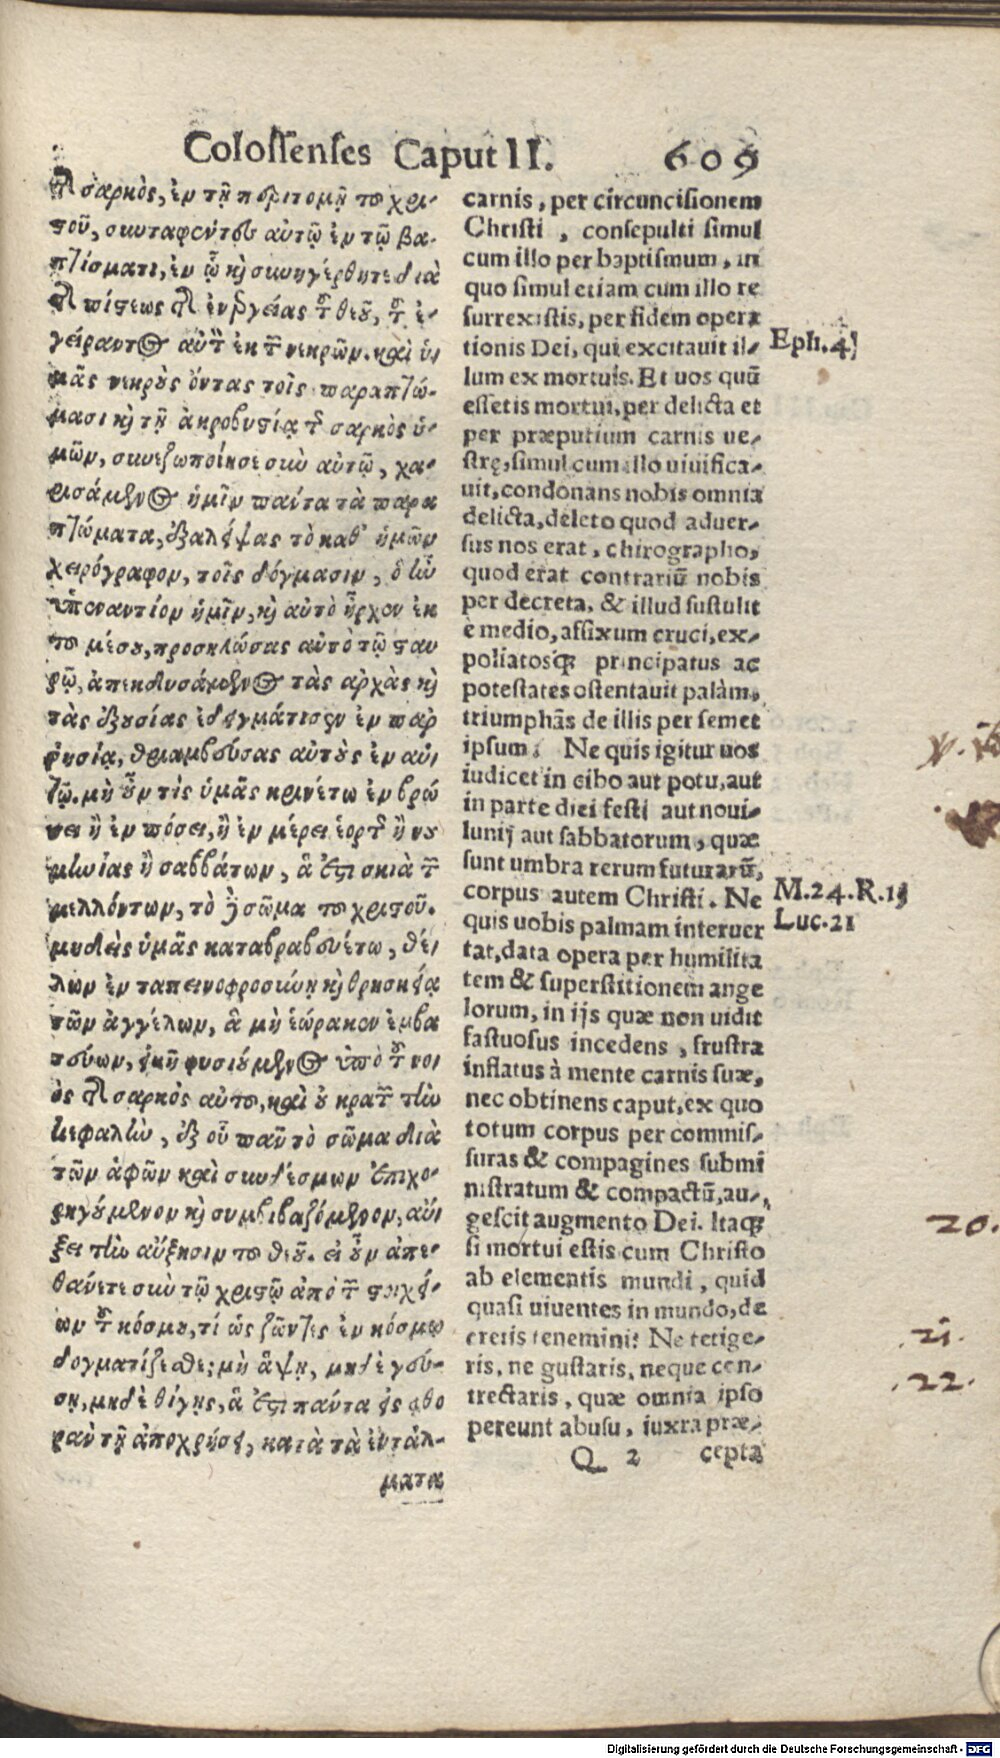 Colossenses Caput II. 609
τῆς σαρκὸς, ἐν τῇ περιτομῇ τοῦ χρι-
στοῦ, συνταφέντες αὐτῷ ἐν τῷ βα-
πτίσματι, ἐν ᾧ καὶ συνηγέρθητε διὰ
τῆς πίστεως τῆς ἐνεργείας τοῦ θεοῦ, τοῦ ἐ-
γείραντος αὐτὸν ἐκ τῶν νεκρῶν. καὶ ὑ
μᾶς νεκροὺς ὄντας τοῖς παραπτώ-
μασι καὶ τῇ ἀκροβυστίᾳ τῆς σαρκὸς ὑ-
μῶν, συνεζωποίησε σὺν αὐτῷ, χα-
ρισάμενος ἡμῖν πάντα τὰ παρα
πτώματα, ἐξαλείψας τὸ καθ' ἡμῶν
χειρόγραφον, τοῖς δόγμασιν, ὃ ἦν
ὑπεναντίον ἡμῖν, καὶ αὐτὸ ἦρκεν ἐκ
τοῦ μέσου, προσηλώσας αὐτὸ τῷ σταυ
ρῷ, ἀπεκδυσάμενος τὰς ἀρχὰς καὶ
τὰς ἐξουσίας ἐδειγμάτισεν ἐν παρ
ρησίᾳ, θριαμβεύσας αὐτοὺς ἐν αὐ
τῷ. μὴ οὖν τὶς ὑμᾶς κρινέτω ἐν βρώ
σει ἢ ἐν πόσει, ἢ ἐν μέρει ἑορτῆς ἢ νου
μηνίας ἢ σαββάτων, ἅ ἐστι σκιὰ τῶν
μελλόντων, τὸ δὲ σῶμα τοῦ χριστοῦ.
μηδεὶς ὑμᾶς καταβραβευέτω, θέ
λων ἐν ταπεινοφροσύνῃ καὶ θρησκείᾳ
τῶν ἀγγέλων, ἃ μὴ ἑώρακεν ἐμβα
τεύων, εἰκῆ φυσιούμενος ὑπὸ τοῦ νο
ὸς τῆς σαρκὸς αὐτοῦ, καὶ οὐ κρατῶν τὴν
κεφαλὴν, ἐξ οὗ πᾶν τὸ σῶμα διὰ
τῶν ἁφῶν καὶ συνδέσμων ἐπιχο-
ρηγούμενον καὶ συμβιβαζόμενον, αὔ
ξει τὴν αὔξησιν τοῦ θεοῦ. εἰ οὖν ἀπε-
θάνετε σὺν τῷ χριστῷ ἀπὸ τῶν στοιχεί-
ων τοῦ κόσμου, τί ὡς ζῶντες ἐν κόσμῳ
δογματίζεσθε; μὴ ἅψῃ, μηδὲ γεύ-
σῃ, μηδὲ θίγῃς, ἅ ἐστι πάντα εἰς φθο
ρὰν τῇ ἀποχρήσει, κατὰ τὰ ἐντάλ-
ματα
carnis, per circuncisionem
Christi, consepulti simul
cum illo per baptismum, in
quo simul etiam cum illo re
surrexistis, per fidem opera
tionis Dei, qui excitauit il-
lum ex mortuis. Et uos quũ
essetis mortui, per delicta et
per præputium carnis ue-
strę, simul cum illo uiuifica-
uit, condonans nobis omnia
delicta, deleto quod aduer-
sus nos erat, chirographo,
quod erat contrariũ nobis
per decreta, & illud sustulit
e medio, affixum cruci, ex-
poliatosq; principatus ac
potestates ostentauit palàm,
triumphãs de illis per semet
ipsum. Ne quis igitur uos
iudicet in cibo aut potu, aut
in parte diei festi aut noui-
lunij aut sabbatorum, quæ
sunt umbra rerum futurarũ,
corpus autem Christi. Ne
quis uobis palmam interuer
tat, data opera per humilita
tem & superstitionem ange
lorum, in ijs quæ non uidit
fastuosus incedens, frustra
inflatus à mente carnis suæ,
nec obtinens caput, ex quo
totum corpus per commis-
suras & compagines submi
nistratum & compactũ, au-
gescit augmento Dei. Itaq;
si mortui estis cum Christo
ab elementis mundi, quid
quasi uiuentes in mundo, de
cretis tenemini? Ne tetige-
ris, ne gustaris, neque con-
trectaris, quæ omnia ipso
pereunt abusu, iuxra præ-
Q 2 cepta
Eph. 4
M. 24. R. 15
Luc. 21
20.
21.
.22.
Digitalisierung gefördert durch die Deutsche Forschungsgemeinschaft - DFG